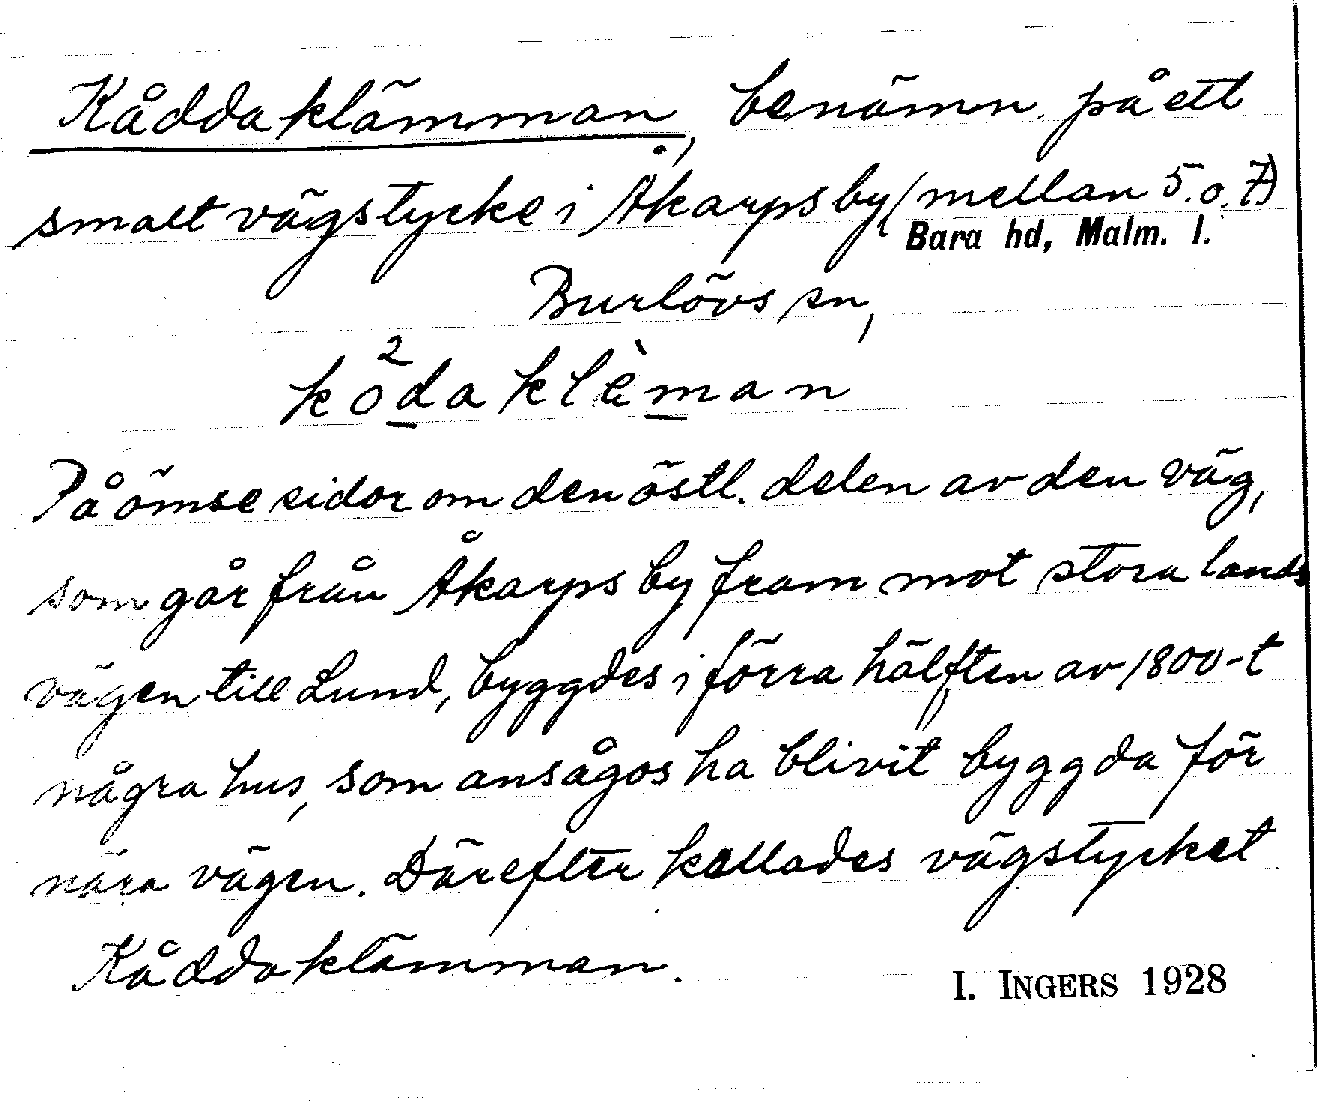 Kåddaklämman, benämn. på ett
smalt vägstycke i Åkarps by (mellan 5. o. 7)
Bara hd, Malm. l.
Burlövs sn,
kö²daklèman
På ömse sidor om den östl. delen av den väg,
som går från Åkarps by fram mot stora lands
vägen till Lund, byggdes i förra hälften av 1800-t
några hus, som ansågos ha blivit byggda för
nära vägen. Därefter kallades vägstycket
Kåddaklämman.
I. INGERS 1928